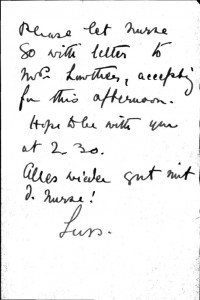 Please let Nurse
go with letter to
Mrs. Lowther, accepting
for this afternoon.
Hope to be with you
at 2.30.
Alles wieder gut mit
d. Nurse!